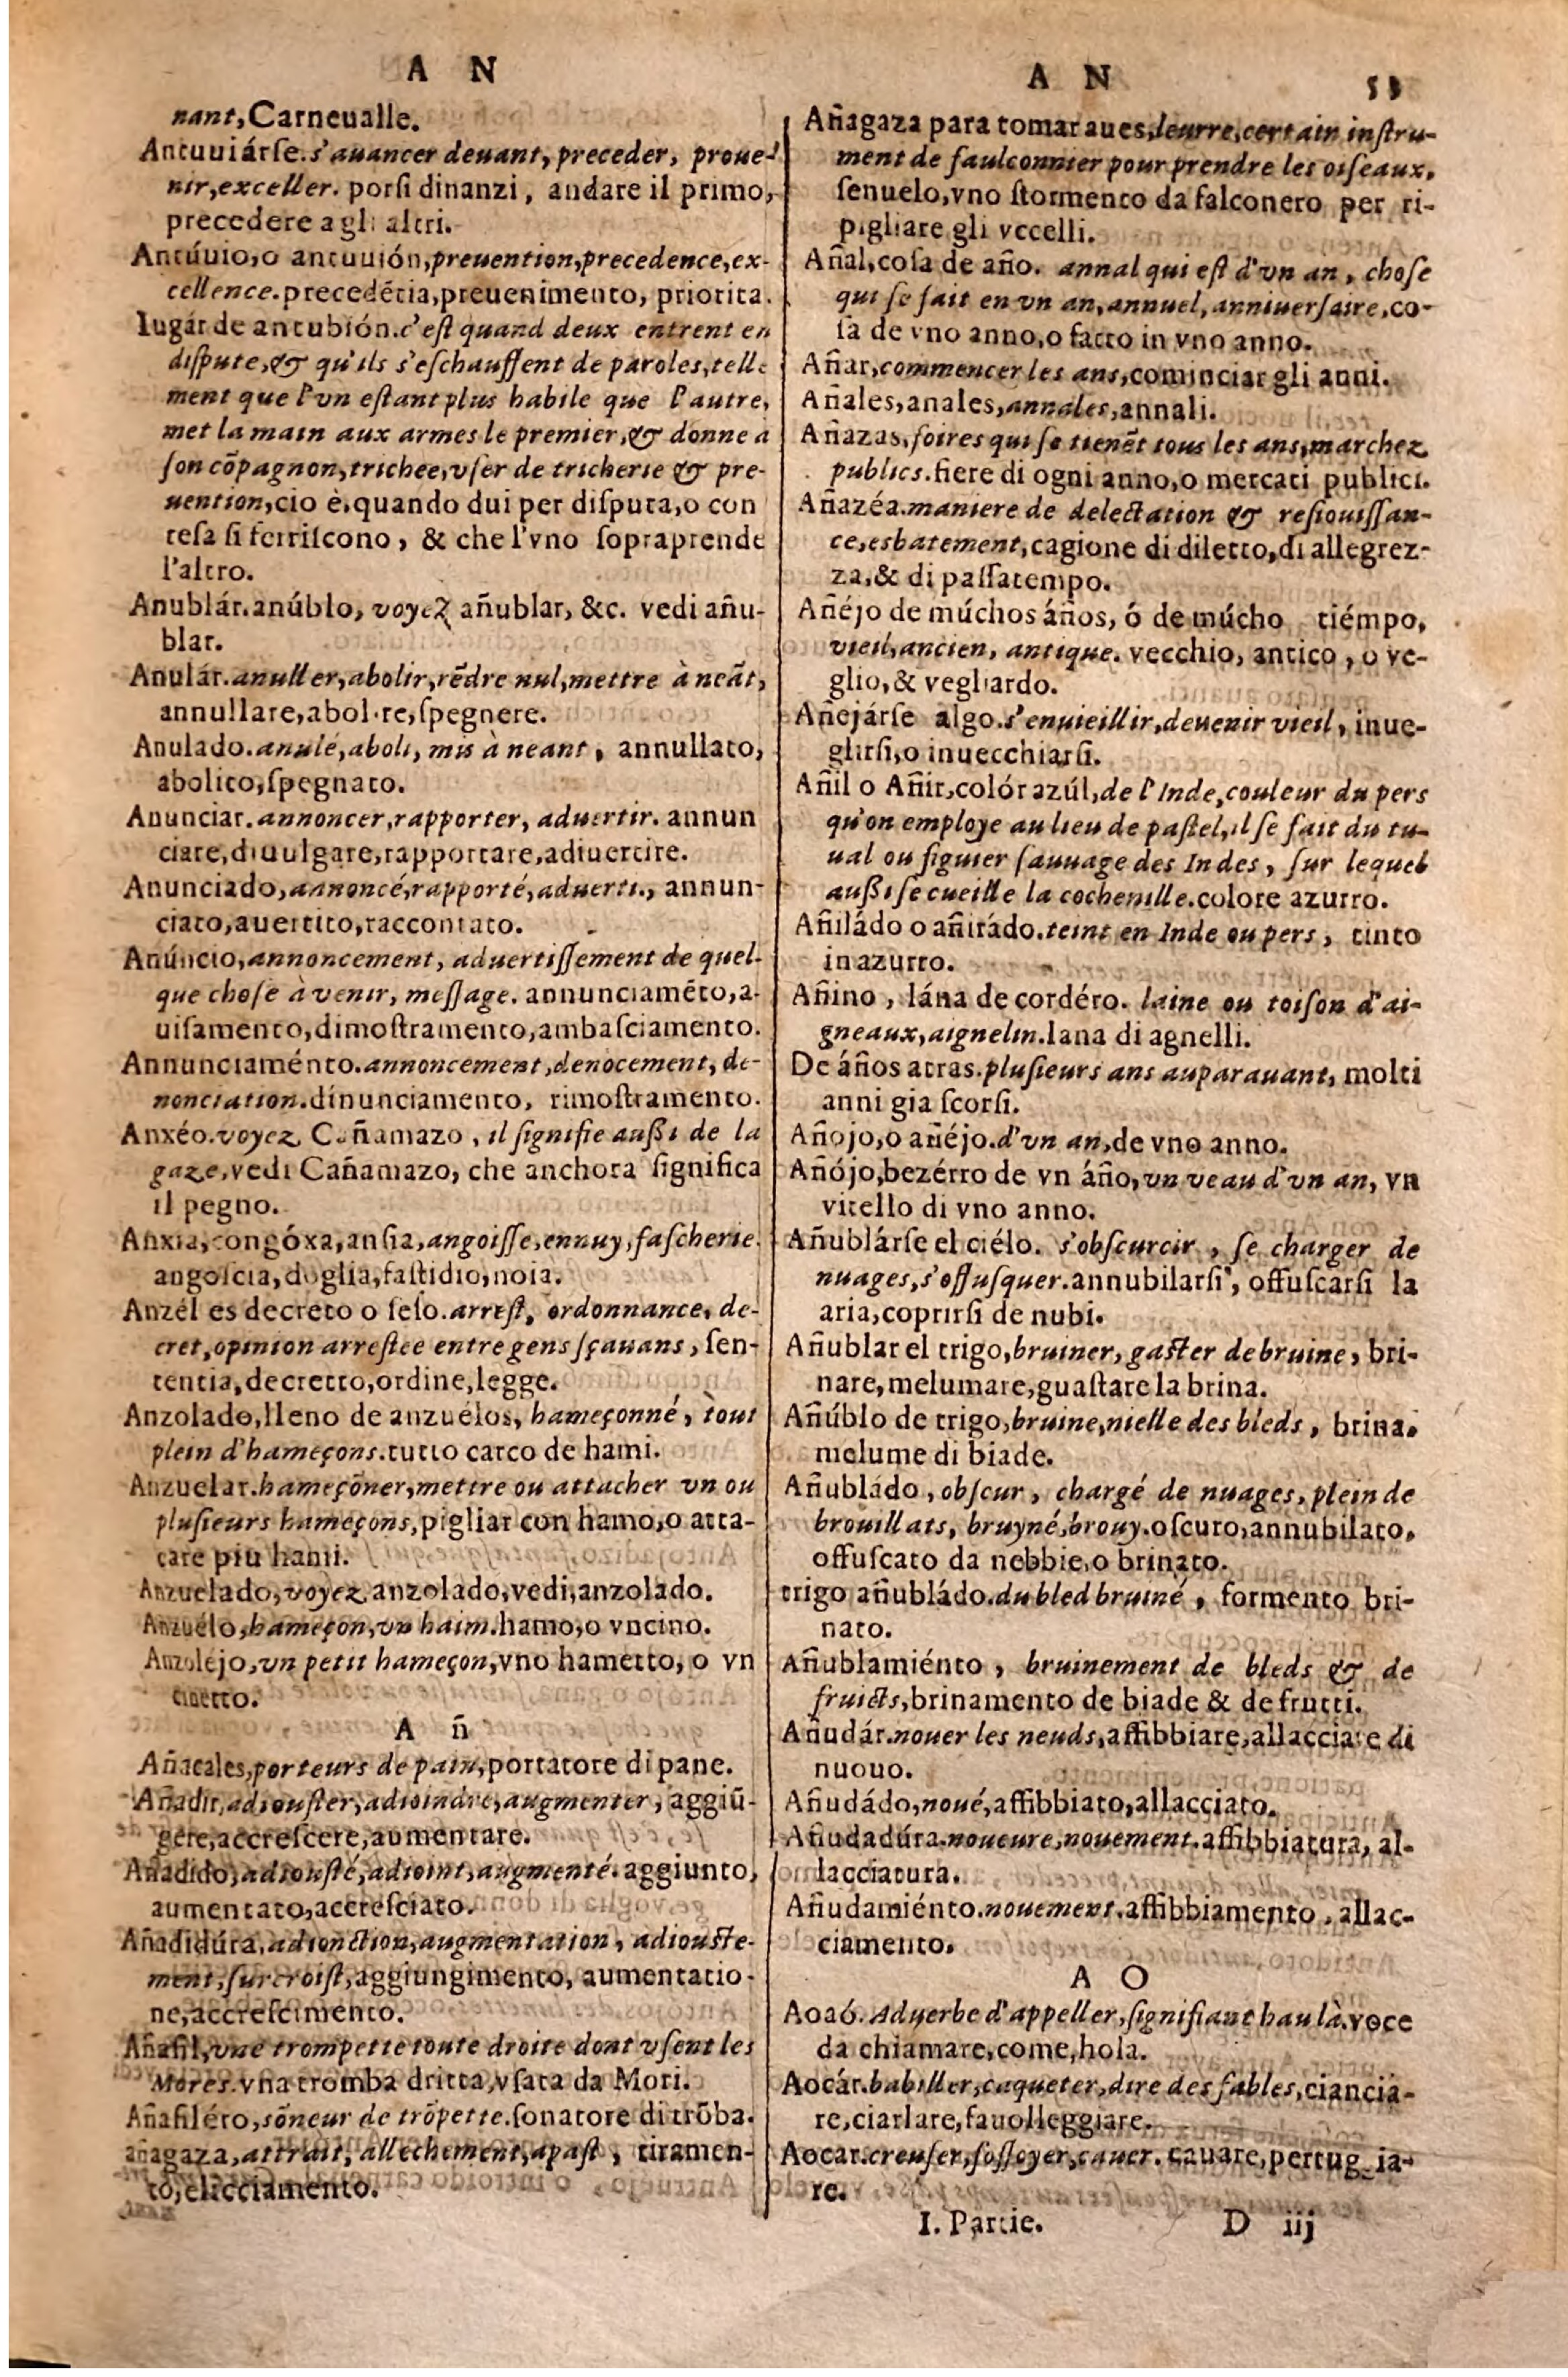 A N
nant, Carneualle.
Antuuiárſe. s'auancer deuant, preceder, proue-
nir, exceller. porſi dinanzi, andare il primo,
precedere a gli altri.
Antúuio, o antuuión, preuention, precedence, ex-
cellence. precedẽtia, preuenimento, priorita.
lugár de antubión. c'eſt quand deux entrent en
diſpute, & qu'ils s'eſchauffent de paroles, telle
ment que l'vn eſtant plus habile que l'autre,
met la main aux armes le premier, & donne à
ſon cõpagnon, trichee, vſer de tricherie & pre-
uention, cio è, quando dui per diſputa, o con
teſa ſi ferriſcono, & che l'vno ſopraprende
l'altro.
Anublár. anúblo, voyez añublar, &c. vedi añu-
blar.
Anulár. anuller, abolir, rẽdre nul, mettre à neãt,
annullare, abolire, ſpegnere.
Anulado. anulé, aboli, mis à neant, annullato,
abolito, ſpegnato.
Anunciar. annoncer, rapporter, aduertir. annun
ciare, diuulgare, rapportare, adiuertire.
Anunciado, aanoncé, rapporté, aduerti., annun-
ciato, auertito, raccontato.
Anúncio, annoncement, aduertiſſement de quel-
que choſe à venir, meſſage. annunciamẽto, a-
uiſamento, dimoſtramento, ambaſciamento.
Annunciaménto. annoncement, denocement, de-
nonciation. dinunciamento, rimoſtramento.
Anxéo. voyez Cañamazo, il ſignifie außi de la
gaze, vedi Cañamazo, che anchora ſignifica
il pegno.
Anxia, congóxa, anſia, angoiſſe, ennuy, faſcherie.
angoſcia, doglia, faſtidio, noia.
Anzél es decreto o ſeſo. arreſt, ordonnance, de-
cret, opinion arreſtee entre gens ſçauans, ſen-
tentia, decretto, ordine, legge.
Anzolado, lleno de anzuelos, hameçonné, tout
plein d'hameçons. tutto carco de hami.
Anzuelar. hameçõner, mettre ou attacher vn ou
pluſieurs hameçons, pigliar con hamo, o atta-
care piu hami.
Anzuelado, voyez anzolado, vedi, anzolado.
Anzuélo, hameçon, vn haim. hamo, o vncino.
Anzoléjo, vn petit hameçon, vno hametto, o vn
cinetto.
A ñ
Añacales, porteurs de pain, portatore di pane.
Añadir, adiouſter, adioindre, augmenter, aggiũ-
gere, accreſcere, aumentare.
Añadido, adiouſté, adioint, augmenté. aggiunto,
aumentato, accreſciato.
Añadidúra, adionction, augmentation, adiouſte-
ment, ſurcroiſt, aggiungimento, aumentatio-
ne, accreſcimento.
Añafil, vne trompette toute droite dont vſent les
Mores. vna tromba dritta, vſata da Mori.
Añafiléro, sõneur de trõpette. ſonatore di trõba.
añagaza, attrait, allechement, apaſt, tiramen-
to, elicciamento.
A N 53
Añagaza para tomar aues, leurre, certain inſtru-
ment de faulconnier pour prendre les oiſeaux,
ſenuelo, vno ſtormento da falconero per ri-
pigliare gli vccelli.
Añal, coſa de año. annal qui eſt d'vn an, choſe
qui ſe fait en vn an, annuel, anniuerſaire, co-
ſa de vno anno, o facto in vno anno.
Añar, commencer les ans, cominciar gli anni.
Añales, anales, annales, annali.
Añazas, foires qui ſe tienẽt tous les ans, marchez
publics. fiere di ogni anno, o mercati publici.
Añazéa. maniere de delectation & reſiouiſſan-
ce, esbatement, cagione di diletto, di allegrez-
za, & di paſſatempo.
Añéjo de múchos áños, ó de múcho tiémpo,
vieil, ancien, antique. vecchio, antico, o ve-
glio, & vegliardo.
Añejárſe algo. s'enuieillir, deuenir vieil, inue-
glirſi, o inuecchiarſi.
Añil o Añir, colór azúl, de l'Inde, couleur du pers
qu'on employe au lieu de paſtel, il ſe fait du tu-
ual ou figuier ſauuage des Indes, ſur lequel
außi ſe cueille la cochenille. colore azurro.
Añiládo o añirádo. teint en Inde ou pers, tinto
in azurro.
Añino, lána de cordéro. laine ou toiſon d'ai-
gneaux, aignelin. lana di agnelli.
De áños atras. pluſieurs ans auparauant, molti
anni gia ſcorſi.
Añojo, o añéjo. d'vn an, de vno anno.
Añójo, bezérro de vn áño, vn veau d'vn an, vn
vitello di vno anno.
Añublárſe el ciélo. s'obſcurcir, ſe charger de
nuages, s'offuſquer. annubilarſi, offuſcarſi la
aria, coprirſi de nubi.
Añublar el trigo, bruiner, gaſter de bruine, bri-
nare, melumare, guaſtare la brina.
Añúblo de trigo, bruine, nielle des bleds, brina.
melume di biade.
Añubládo, obſcur, chargé de nuages, plein de
brouillats, bruyné, brouy. oſcuro, annubilato,
offuſcato da nebbie, o brinato.
trigo añubládo. du bled bruiné, formento bri-
nato.
Añublamiénto, bruinement de bleds & de
fruicts, brinamento de biade & de frutti.
Añudár. nouer les neuds, affibbiare, allacciare di
nuouo.
Añudádo, noué, affibbiato, allacciato.
Añudadúra. noueure, nouement. affibbiatura, al-
lacciatura.
Añudamiénto. nouement. affibbiamento, allac-
ciamento.
A O
Aoaó. Aduerbe d'appeller, ſignifiant hau là. voce
da chiamare, come, hola.
Aocár. babiller, caqueter, dire des fables, ciancia-
re, ciarlare, fauolleggiare.
Aocar. creuſer, foſſoyer, cauer. cauare, pertug ia-
re.
I. Partie. D iij